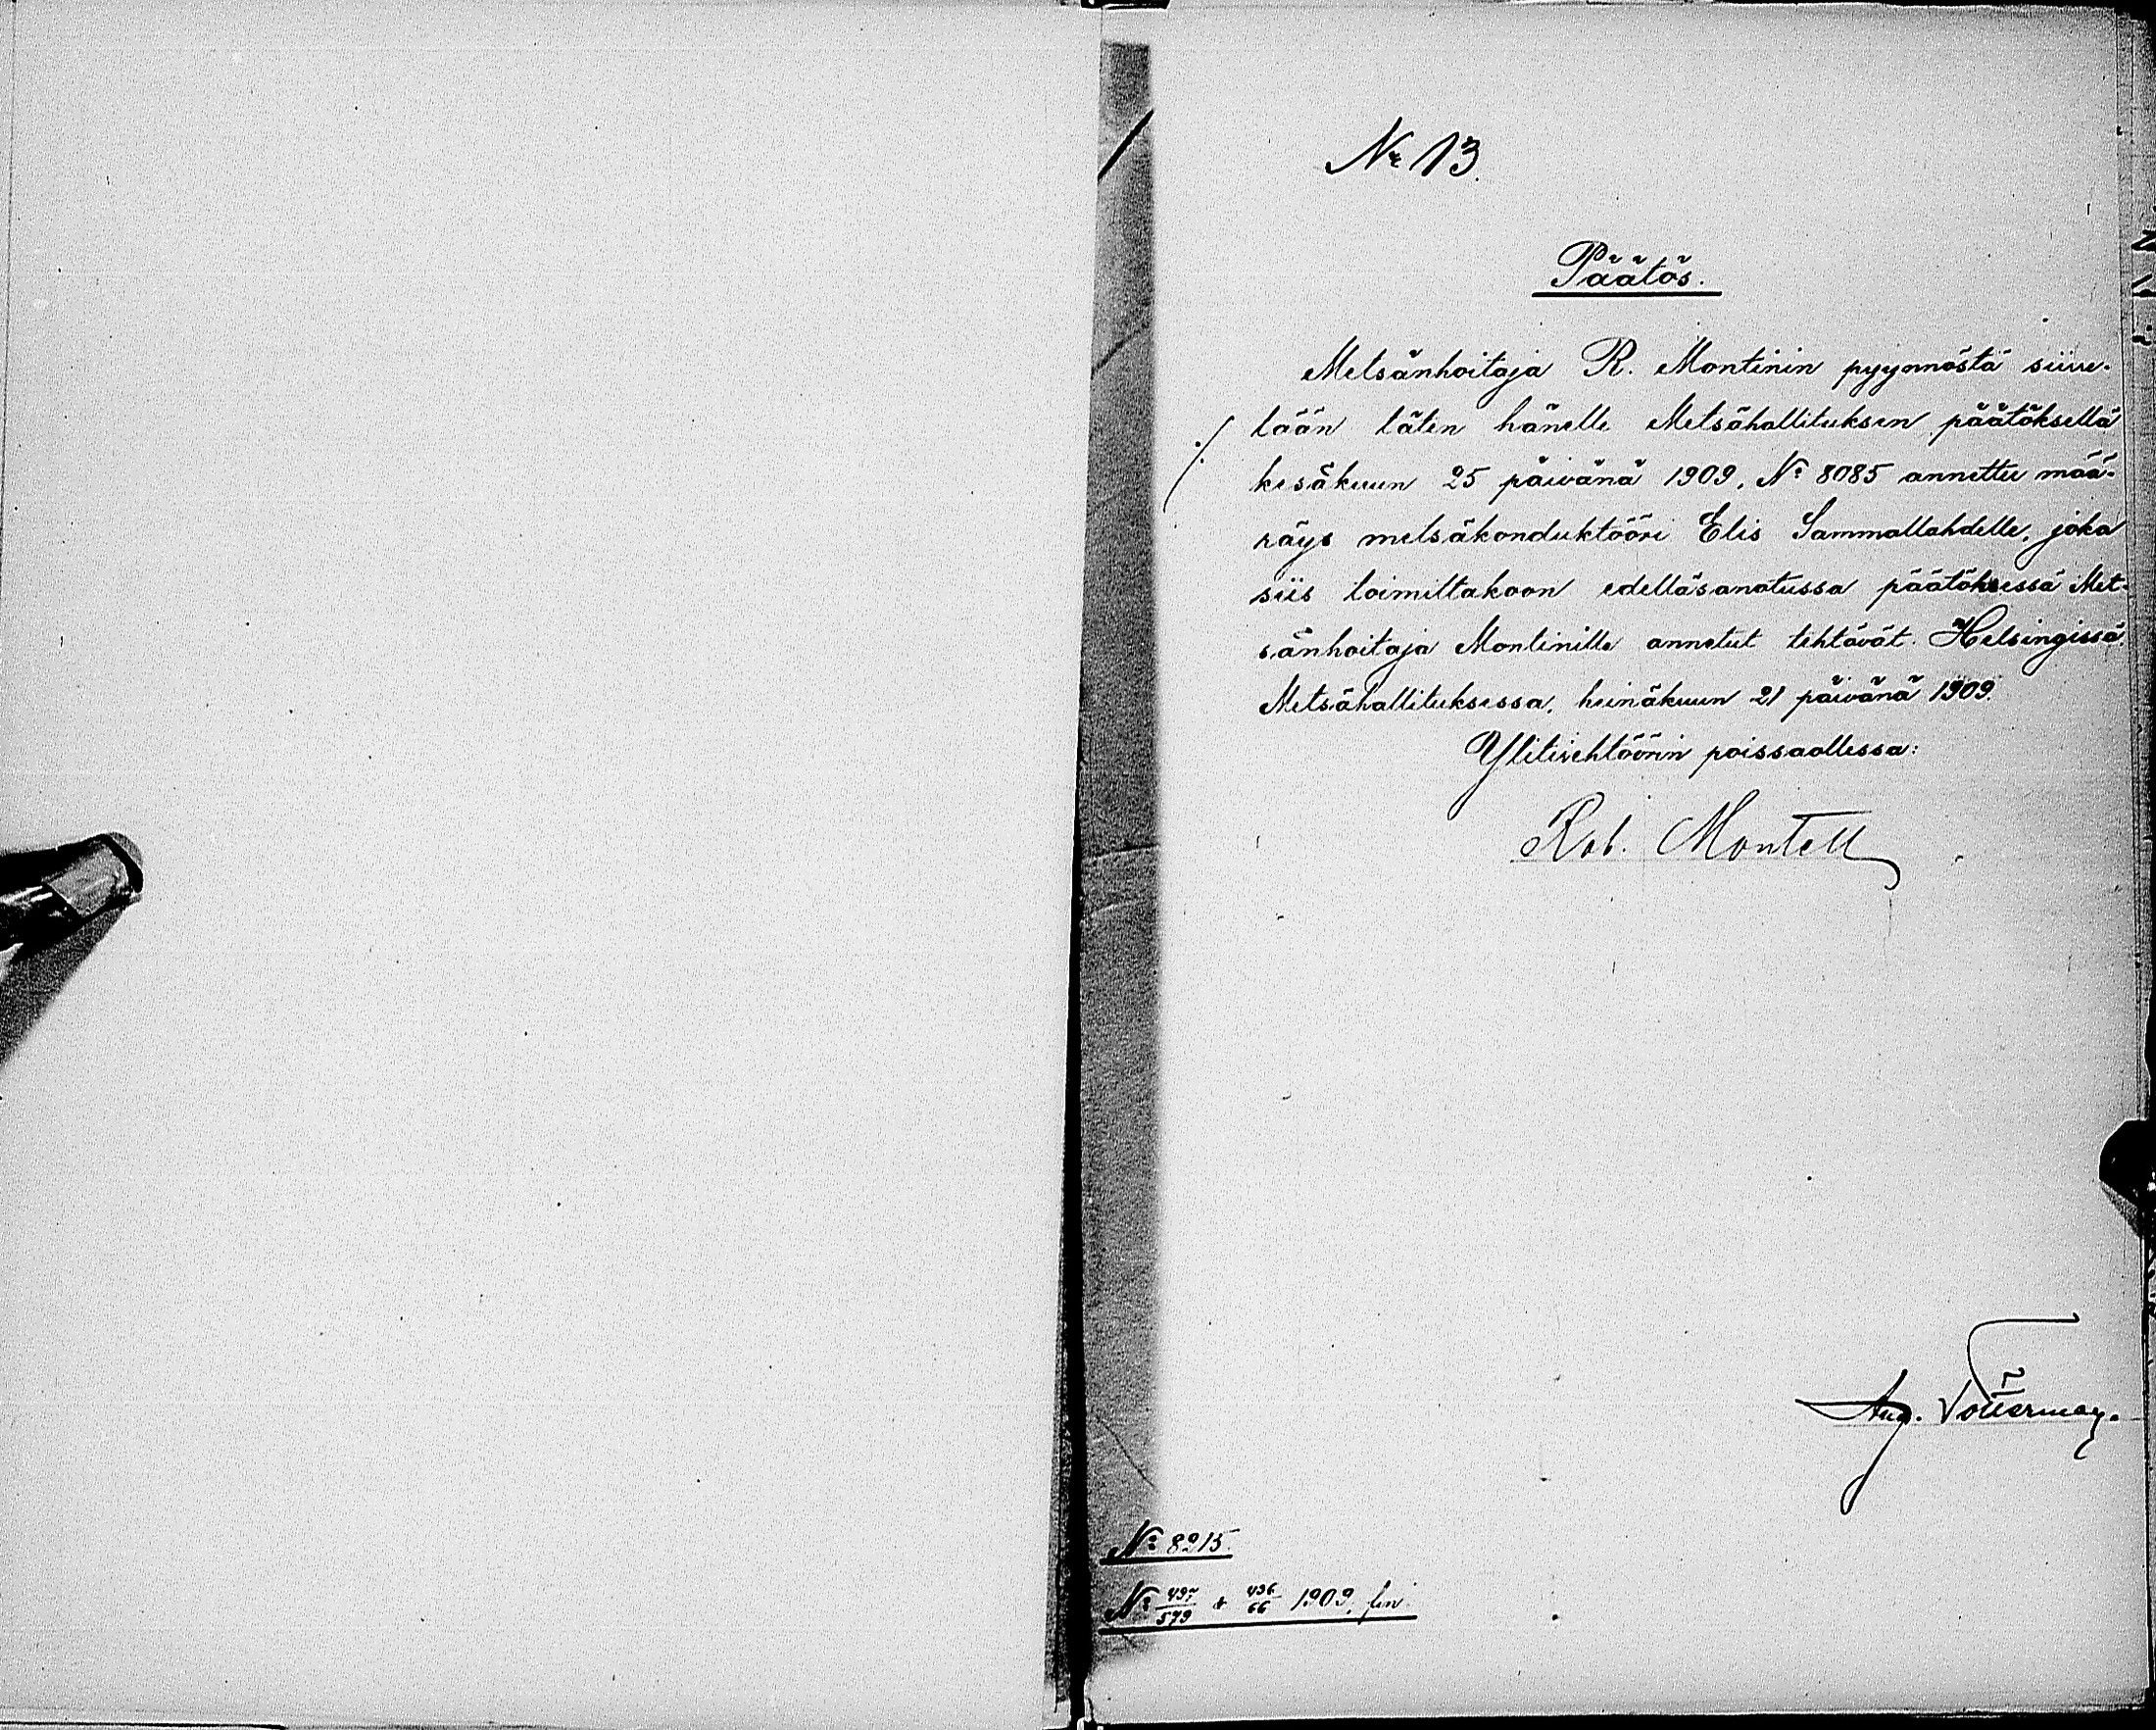 No 13.
Päätös.
Metsänhoitaja R. Montinin pyynnöstä siirre-
tään täten hänelle Metsähallituksen päätöksellä
kesäkuun 25 päivänä 1909, No 8085 annettu mää-
räys metsäkonduktööri Elis Sammallahdelle, joka
siis toimittakoon edelläsanotussa päätöksessä Met-
sänhoitaja Montinille annetut tehtävät. Helsingissä,
Metsähallituksessa, heinäkuun 21 päivänä 1909.
Ylitirehtöörin poissaollessa:
Rob. Montell
Aug.
No 8215.
No 497/579 & 436/66 1909, fin.